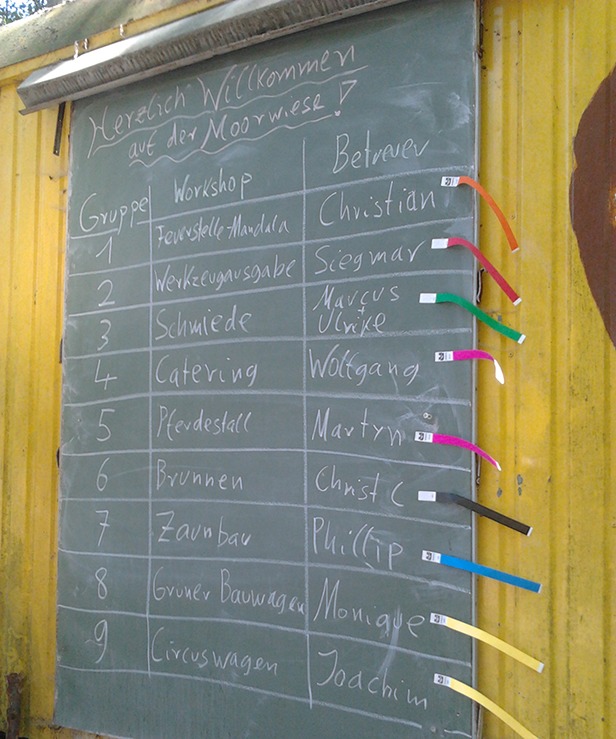 Herzlich Willkommen
auf der Moorwiese!
Gruppe Workshop Betreuer
1 Feuerstelle-Mandala Christian
2 Werkzeugausgabe Siegmar
3 Schmiede Marcus + Ulrike
4 Catering Wolfgang
5 Pferdestall Martyn
6 Brunnen Christ C
7 Zaunbau Phillip
8 Grüner Bauwagen Monique
9 Circuswagen Joachim